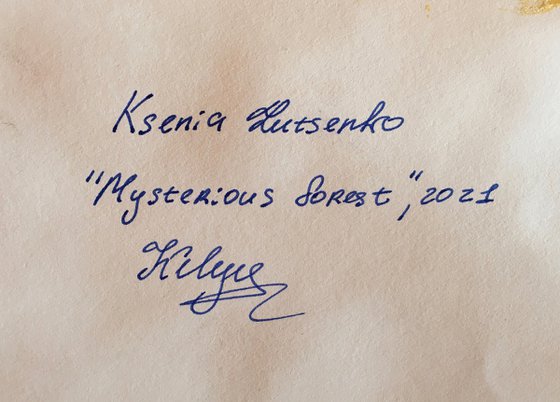 Ksenia Lutsenko
"Mysterious forest", 2021